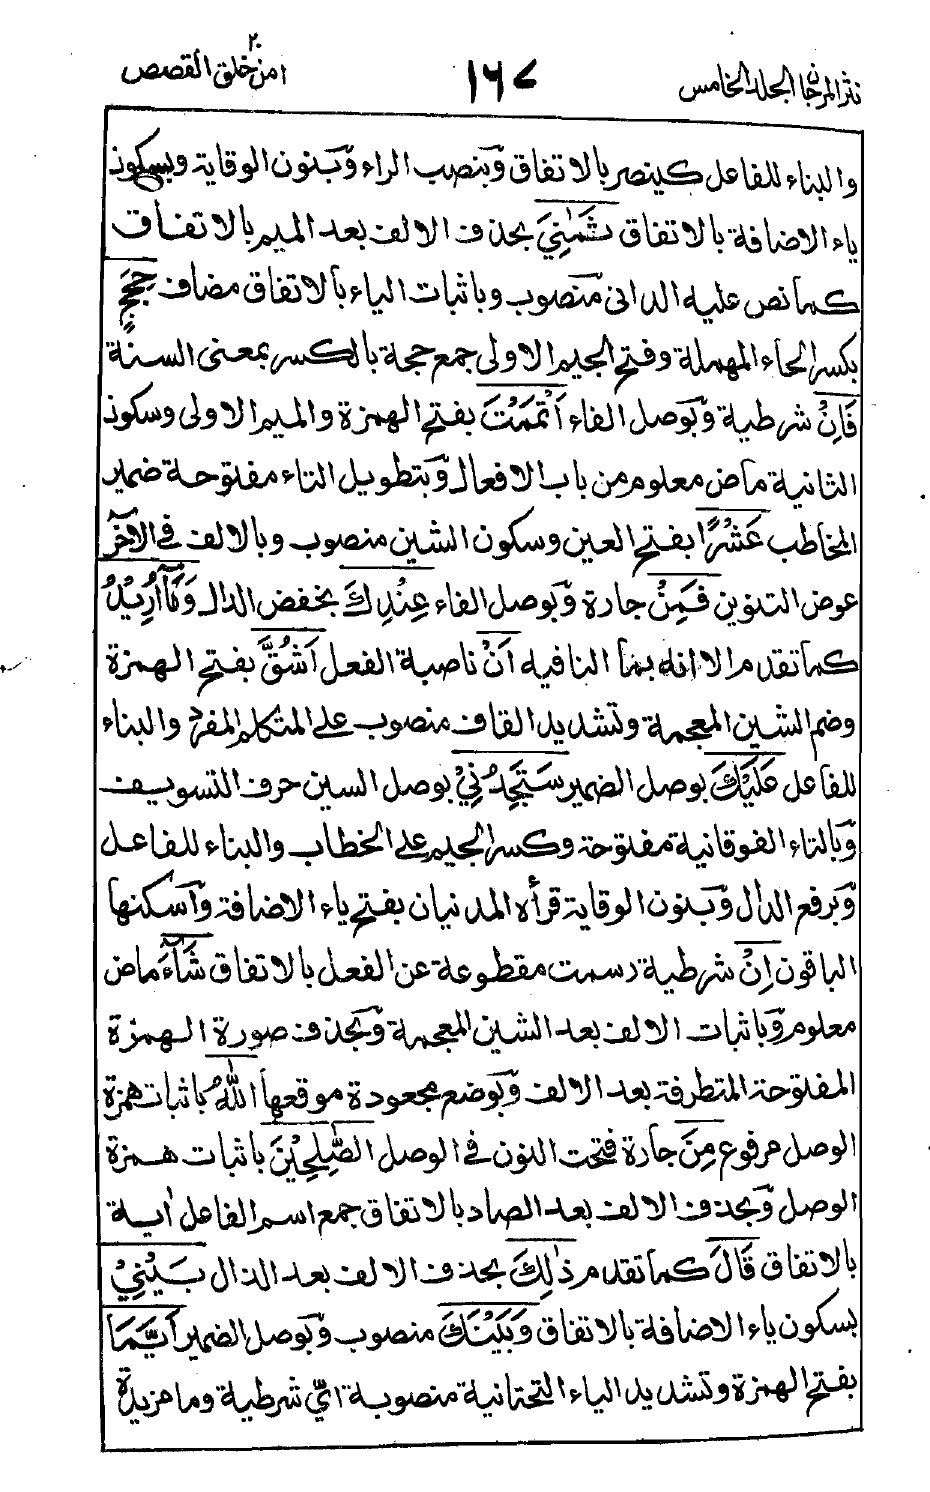 نثر المرجان الجلد الخامس
١٦٧
٢٠
امن خلق القصص
والبناء للفاعل كينصر بالاتفاق وبنصب الراء وبنون الوقاية وبسكون
ياء الاضافة بالاتفاق ثَمٰنِيَ بحذف الالف بعد الميم بالاتفاق
كما نص عليه الدانى منصوب وباثبات الياء بالاتفاق مضاف حِجَجٍ
بكسر الحاء المهملة وفتح الجيم الاولى جمع حجة بالكسر بمعنى السنة
فَاِنْ شرطية وبوصل الفاء اَتْمَمْتَ بفتح الهمزة والميم الاولى وسكون
الثانية ماض معلوم من باب الافعال وبتطويل التاء مفتوحة ضمير
المخاطب عَشْرًا بفتح العين وسكون الشين منصوب وبالالف فى الآخر
عوض التنوين فَمِنْ جارة وبوصل الفاء عِنْدِكَ بخفض الدال وَمَآ اُرِيْدُ
كما تقدم الا انه بما النافيه اَنْ ناصبة الفعل اَشُقَّ بفتح الهمزة
وضم الشين المعجمة وتشديد القاف منصوب على المتكلم المفرد والبناء
للفاعل عَلَيْكَ بوصل الضمير سَتَجِدُنِيْ بوصل السين حرف التسويف
وبالتاء الفوقانية مفتوحة وكسر الجيم على الخطاب والبناء للفاعل
وبرفع الدال وبنون الوقاية قرأه المدنيان بفتح ياء الاضافة وآسكنها
الباقون اِنْ شرطية رسمت مقطوعة عن الفعل بالاتفاق شَآءَ ماض
معلوم وباثبات الالف بعد الشين المعجمة وبحذف صورة الهمزة
المفتوحة المتطرفة بعد الالف وبوضع مجعودة موقعها اللّٰهُ باثبات همزة
الوصل مرفوع مِنَ جارة فتحت النون فى الوصل الصّٰلِحِيْنَ باثبات همزة
الوصل وبحذف الالف بعد الصاد بالاتفاق جمع اسم الفاعل اٰية
بالاتفاق قَالَ كما تقدم ذٰلِكَ بحذف الالف بعد الذال بَيْنِيْ
بسكون ياء الاضافة بالاتفاق وَبَيْنَكَ منصوب وبوصل الضمير اَيَّمَا
بفتح الهمزة وتشديد الياء التحتانية منصوبة اىّ شرطية وما مزيدة